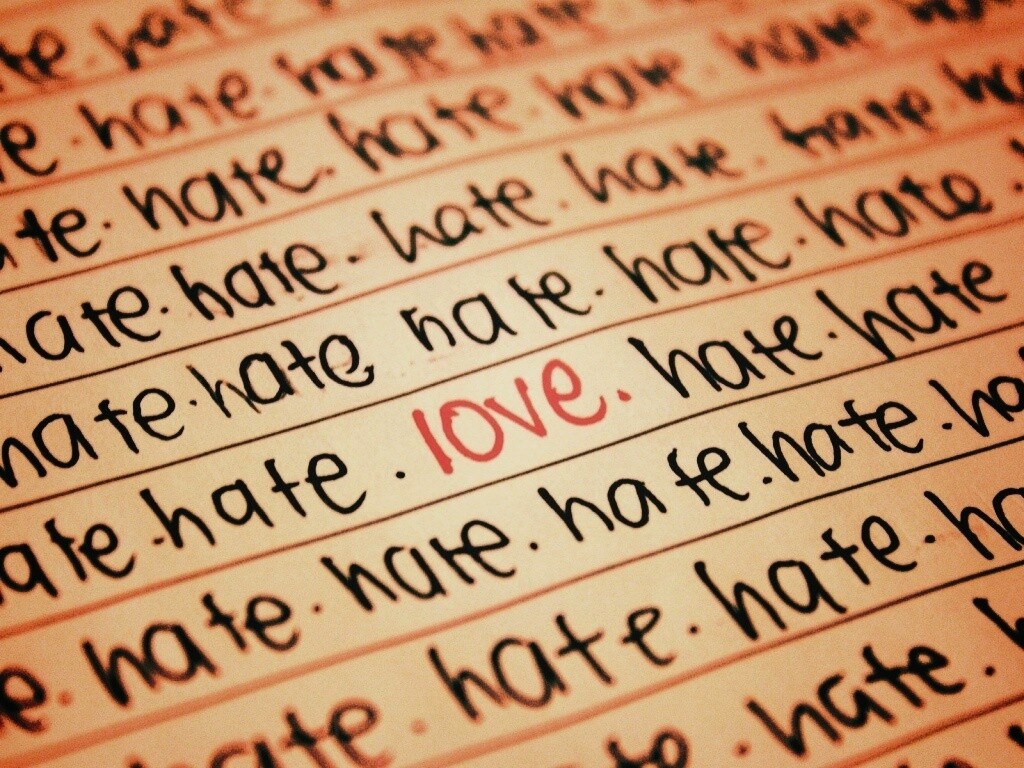 te. hate
te. hate. hate hate hate
ate. hate. hate hate. hate
hate. hate. hate. hate. hate. ha
hate. hate hate. hate. hate.
ate. hate. love. hate. hate
e. hate. hate. hate. hate. ha
hate. hate. hate. ha
hate.